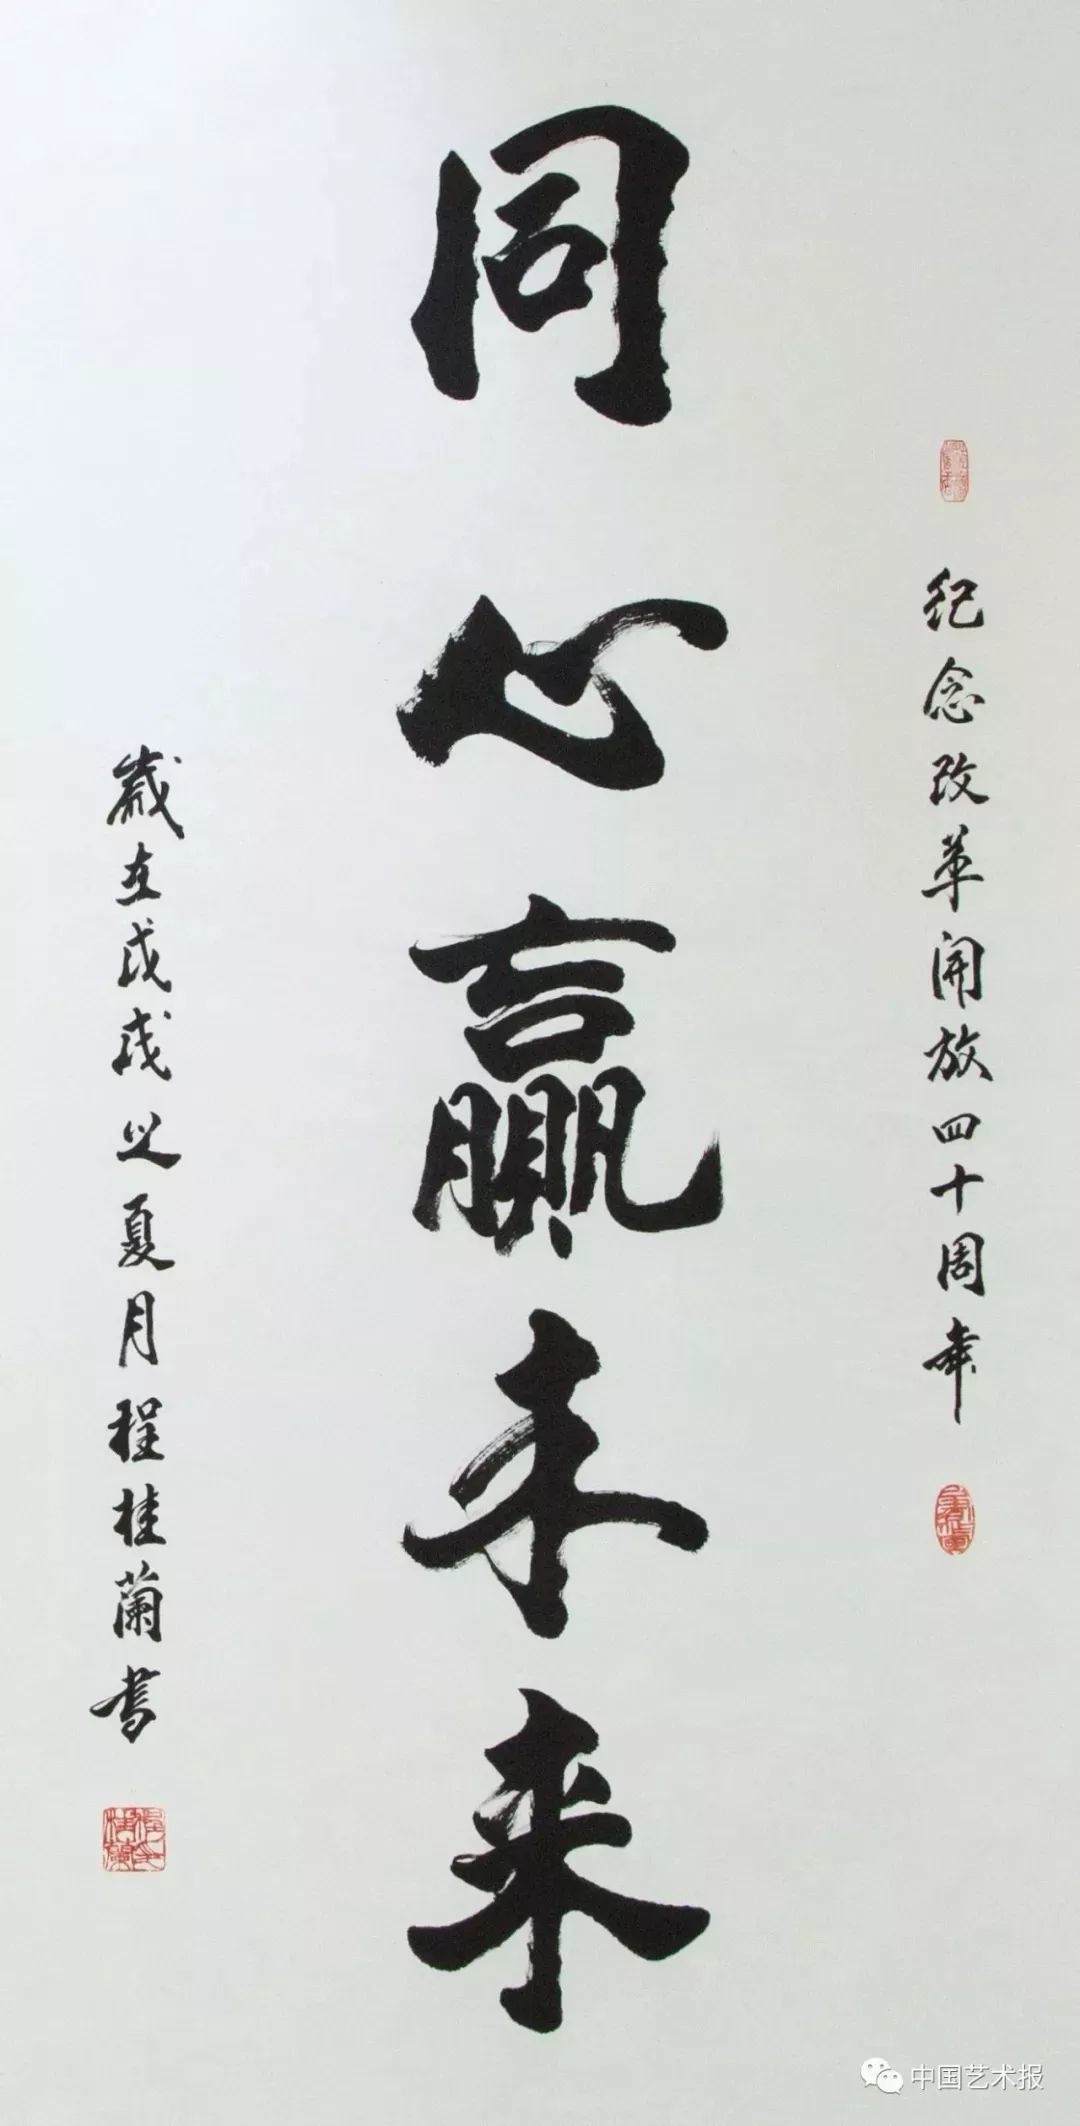 纪念改革開放四十周年
同心赢未来
歲在戊戌之夏月程桂蘭書
中国艺术报